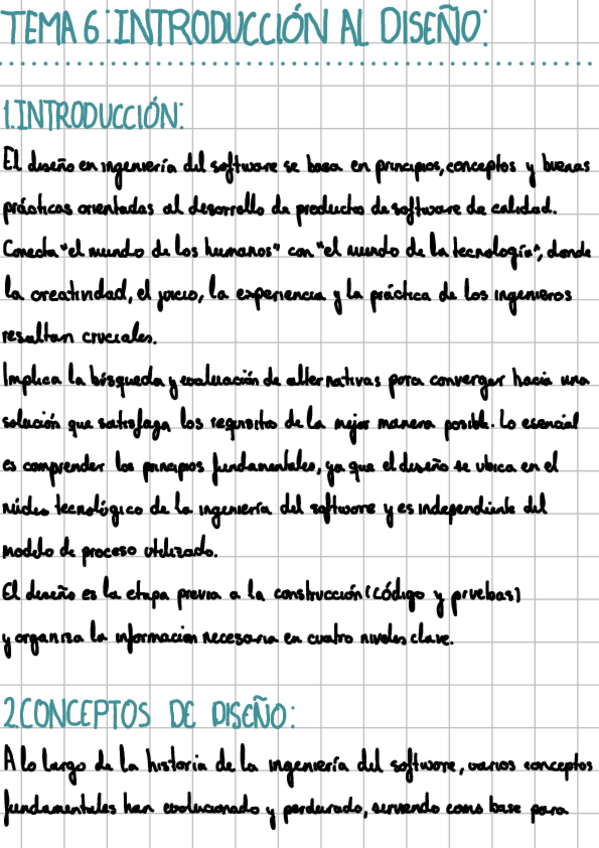 TEMA 6: INTRODUCCIÓN AL DISEÑO:
1. INTRODUCCIÓN:
El diseño en ingeniería del software se basa en principios, conceptos y buenas
prácticas orientadas al desarrollo de productos de software de calidad.
Conecta "el mundo de los humanos" con "el mundo de la tecnología", donde
la creatividad, el juicio, la experiencia y la práctica de los ingenieros
resultan cruciales.
Implica la búsqueda y evaluación de alternativas para converger hacia una
solución que satisfaga los requisitos de la mejor manera posible. Lo esencial
es comprender los principios fundamentales, ya que el diseño se ubica en el
núcleo tecnológico de la ingeniería del software y es independiente del
modelo de proceso utilizado.
El diseño es la etapa previa a la construcción (código y pruebas)
y organiza la información necesaria en cuatro niveles clave.
2. CONCEPTOS DE DISEÑO:
A lo largo de la historia de la ingeniería del software, varios conceptos
fundamentales han evolucionado y perdurado, sirviendo como base para